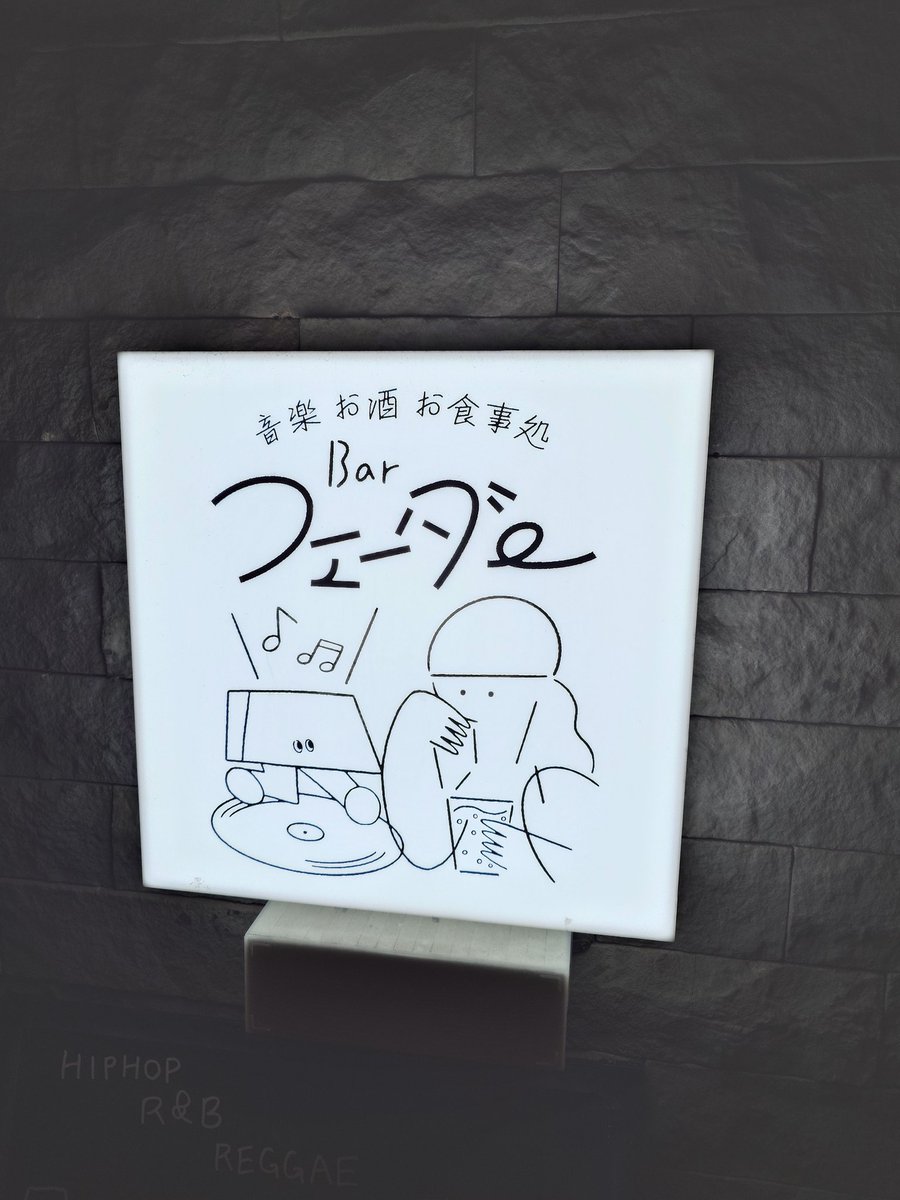 音楽 お酒 お食事処
Bar
フェーダe
HIPHOP
R&B
REGGAE